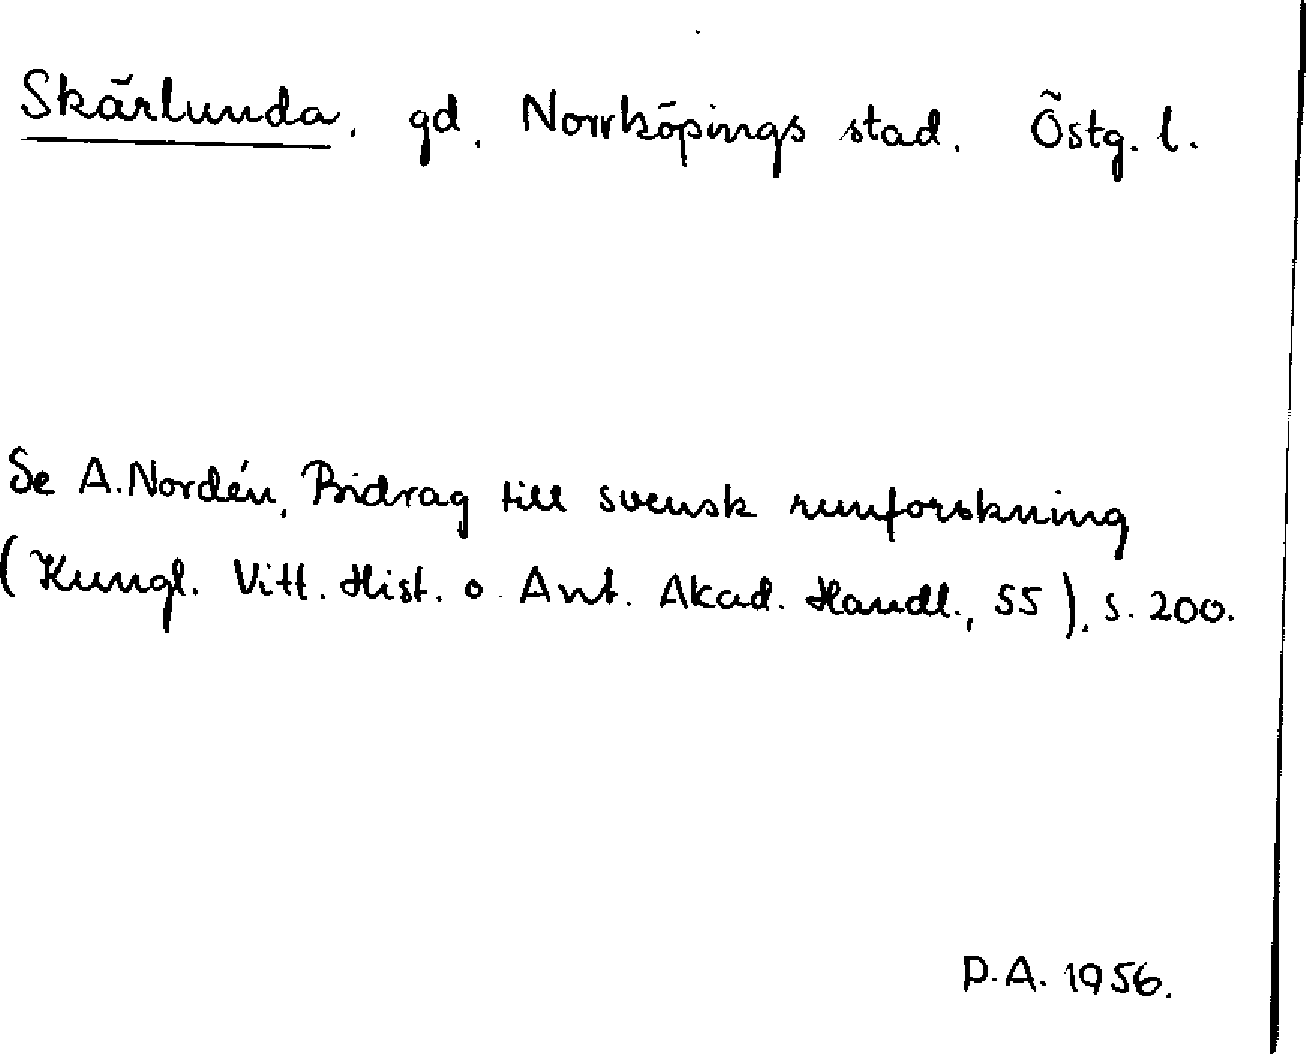 Skärlunda, gd, Norrköpings stad. Östg. l.
Se A. Nordén, Bidrag till svensk runforskning
(Kungl. Vitt. Hist. o. Ant. Akad. Handl., 55), s. 200.
P.A. 1956.